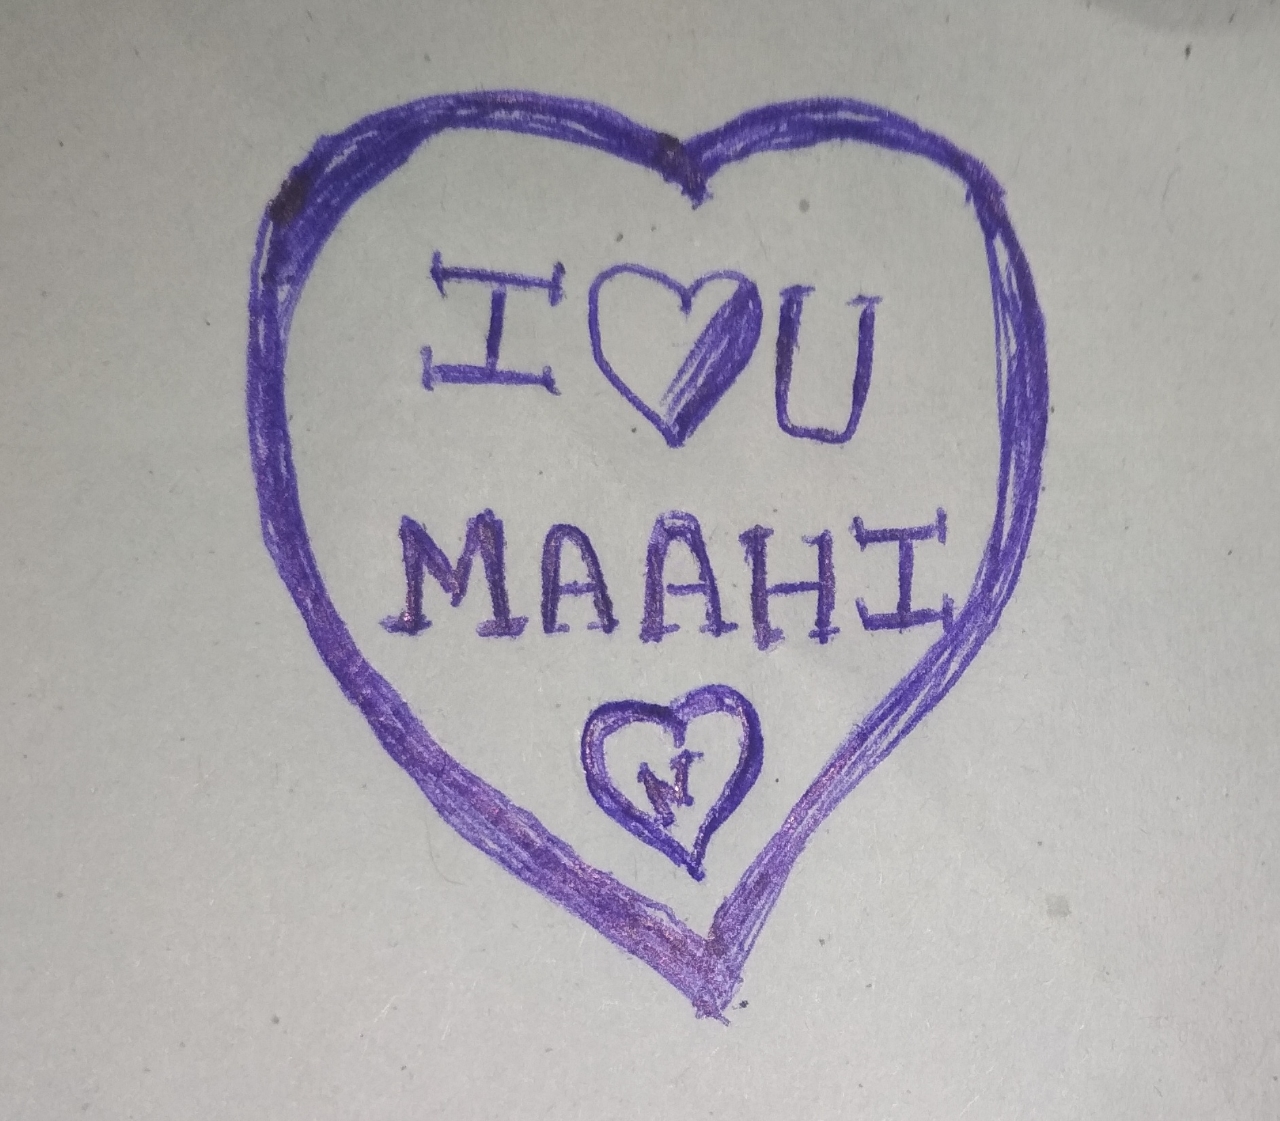 I ♡ U
MAAHI
N